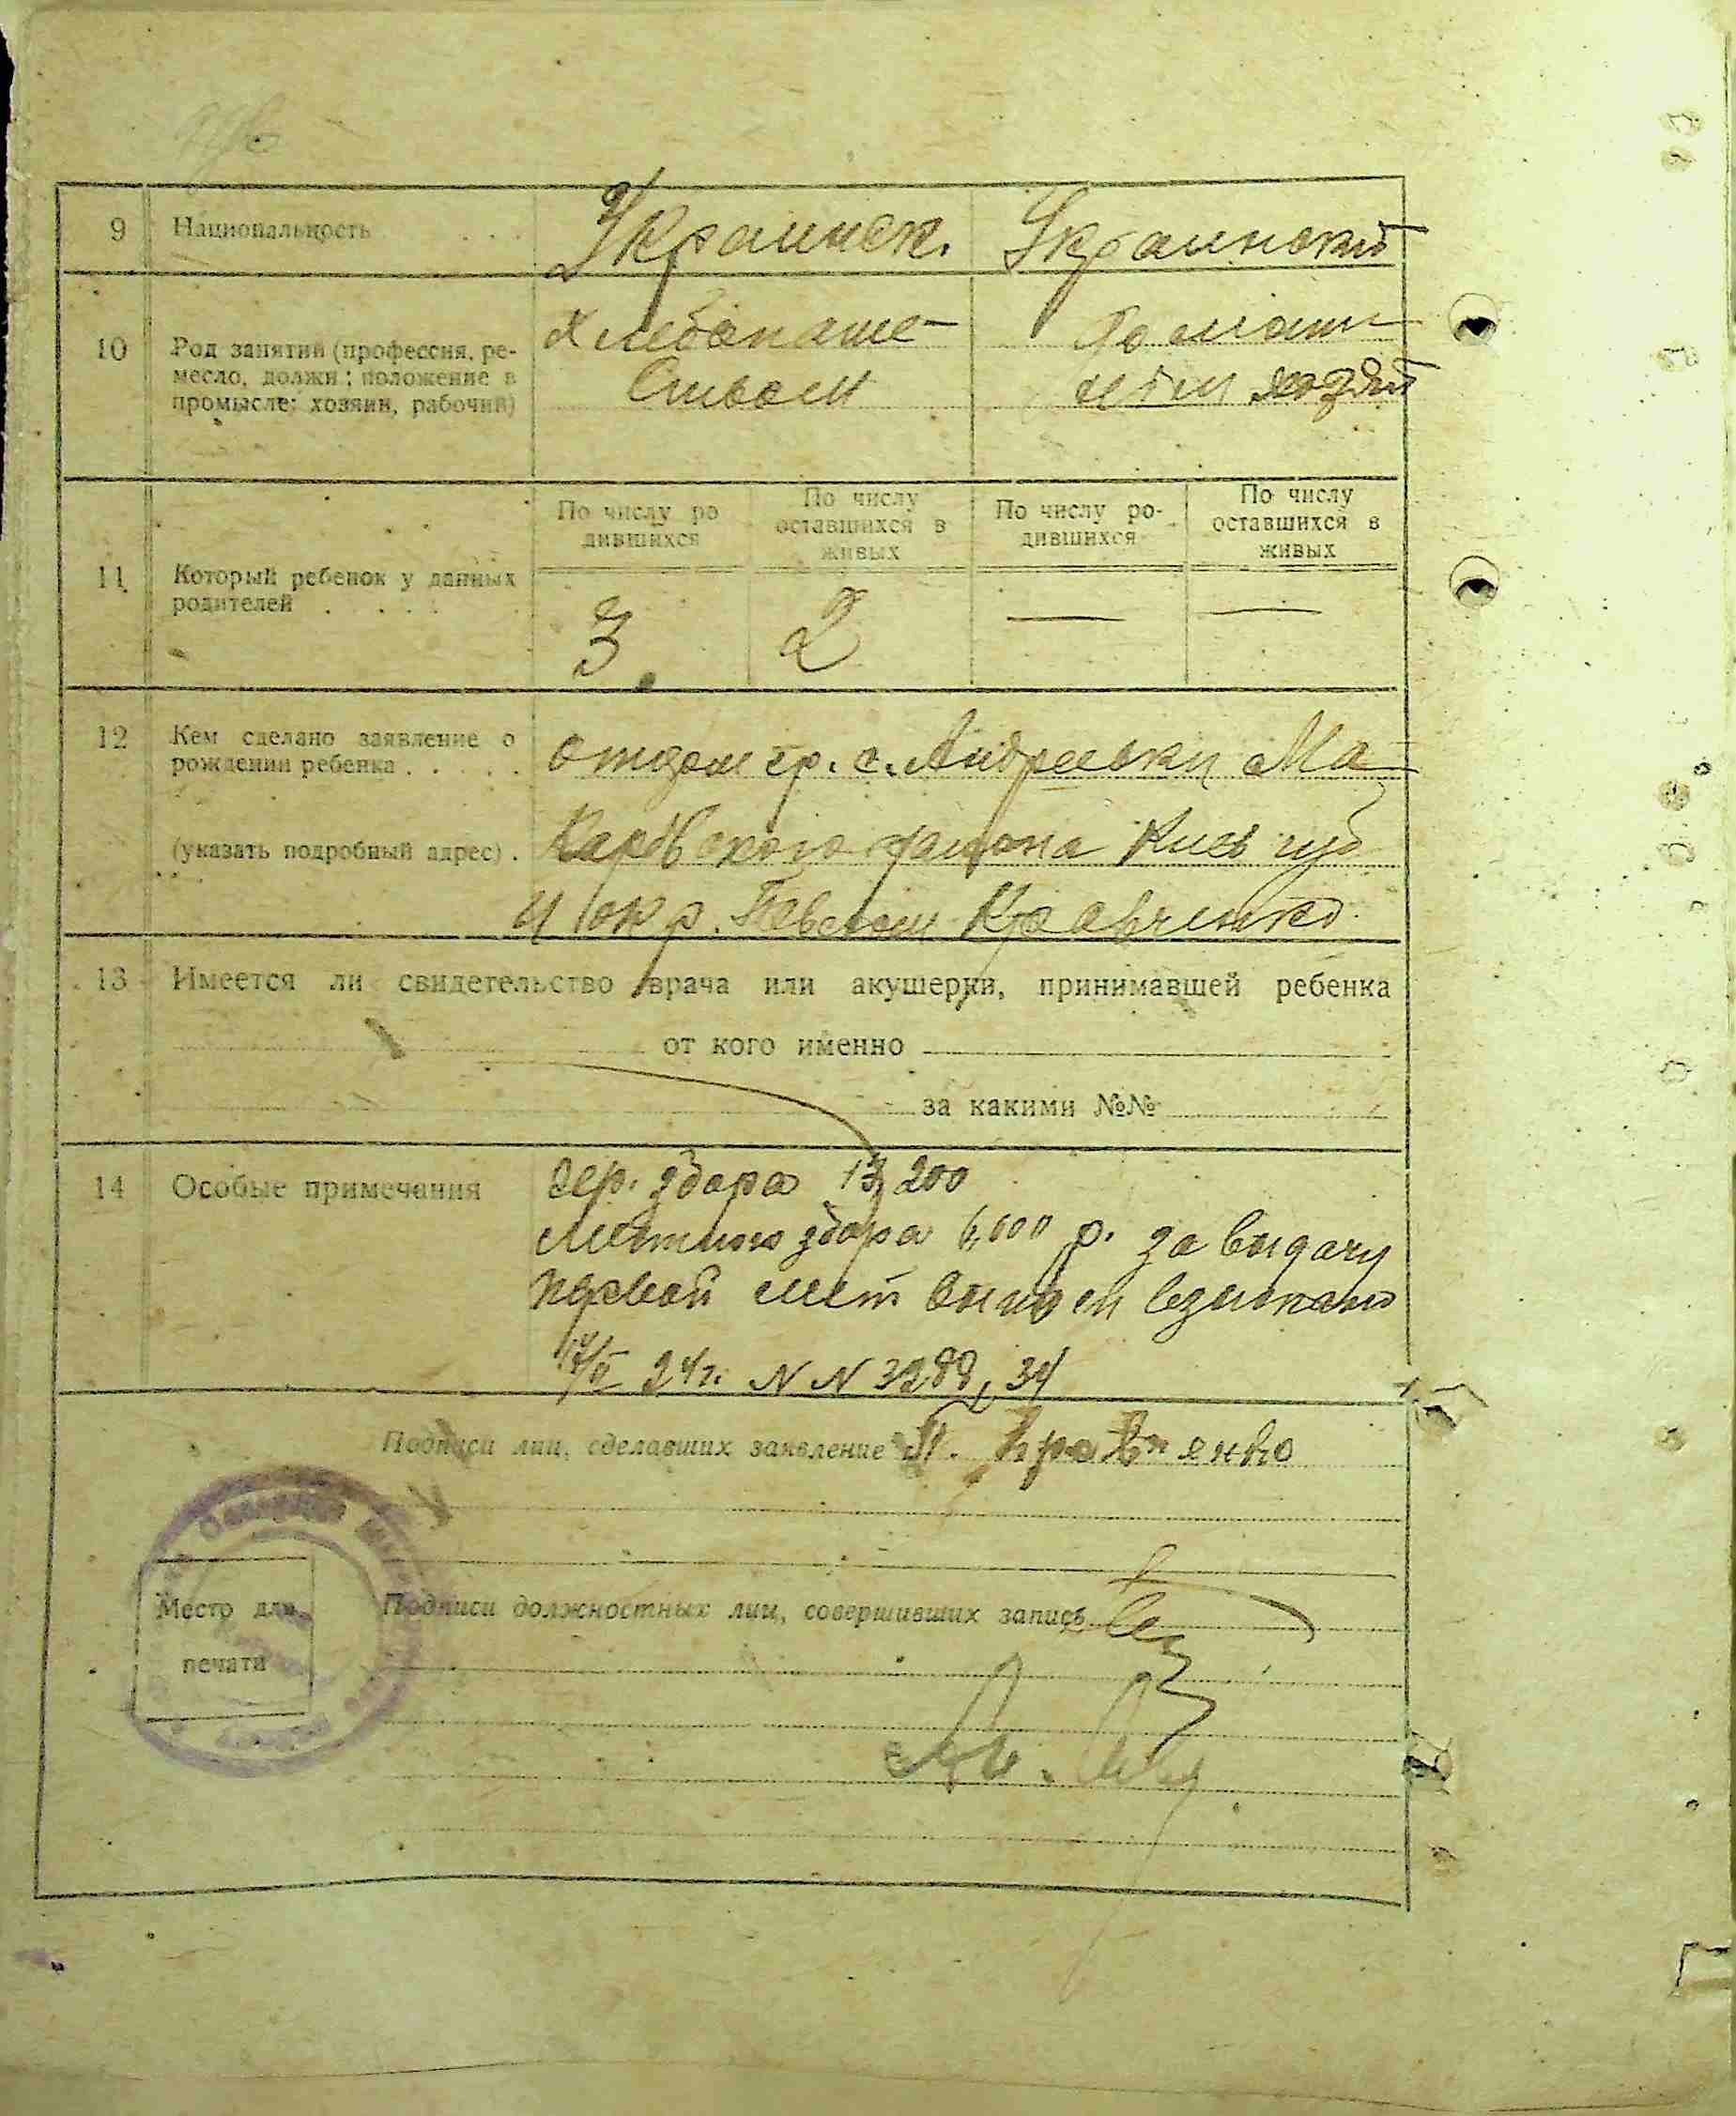 9 Национальность . . . Украинск. Украинской
10 Род занятий (профессия, ре-
месло, должн.; положение в
промысле: хозяин, рабочий)
Хлебопаше-
ством
Домаш-
ним хозяй
11 Который ребенок у данных
родителей . . . .
По числу ро
дившихся
По числу
оставшихся в
живых
По числу ро-
дившихся
По числу
оставшихся в
живых
3. 2 — —
12 Кем сделано заявление о
рождении ребенка . . . . .
(указать подробный адрес) .
отцом гр. с. Андреевки Ма-
каровского района Киев губ
и окр. Павлом Кравченко
13 Имеется ли свидетельство врача или акушерки, принимавшей ребенка
от кого именно
за какими №№
14 Особые примечания
збора 13,200
местного збора 6,000 р. за выдачу
первой мет выписи взыскано
24 г. N N 3288, 34
Подписи лиц, сделавших заявление П. Кравченко
Место для
печати
Подписи должностных лиц, совершивших запись